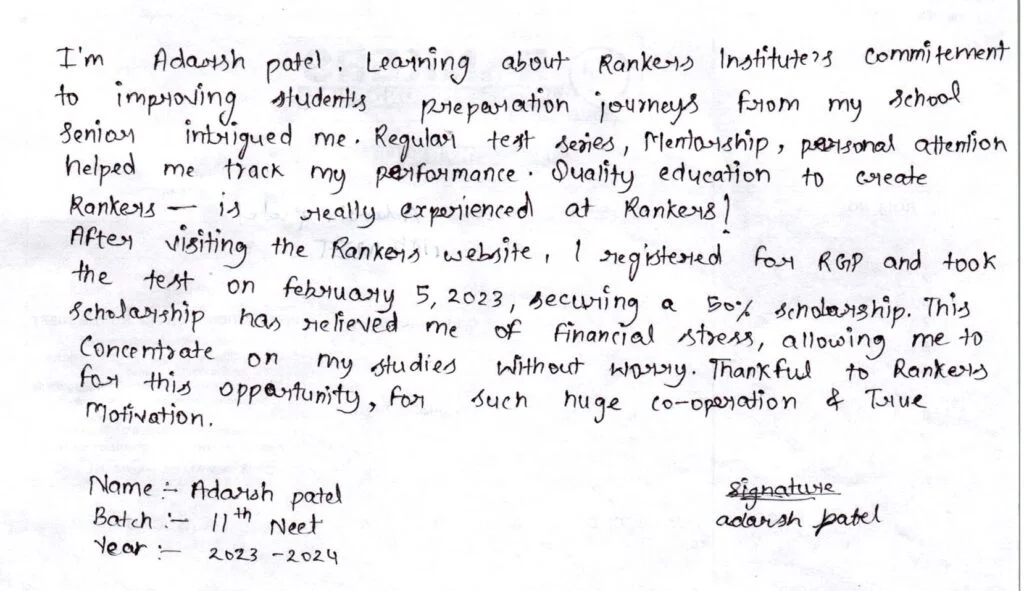 I'm Adarsh patel. Learning about Rankers Institute's commitement
to improving students preparation journeys from my school
senior intrigued me. Regular test series, Mentorship, personal attention
helped me track my performance. Quality education to create
Rankers — is really experienced at Rankers!
After visiting the Rankers website, I registered for RGP and took
the test on february 5, 2023, securing a 50% scholarship. This
scholarship has relieved me of financial stress, allowing me to
Concentrate on my studies without worry. Thankful to Rankers
for this opportunity, for such huge co-operation & True
Motivation.
Name :- Adarsh patel
Batch :- 11th Neet
Year :- 2023 - 2024
Signature
adarsh patel